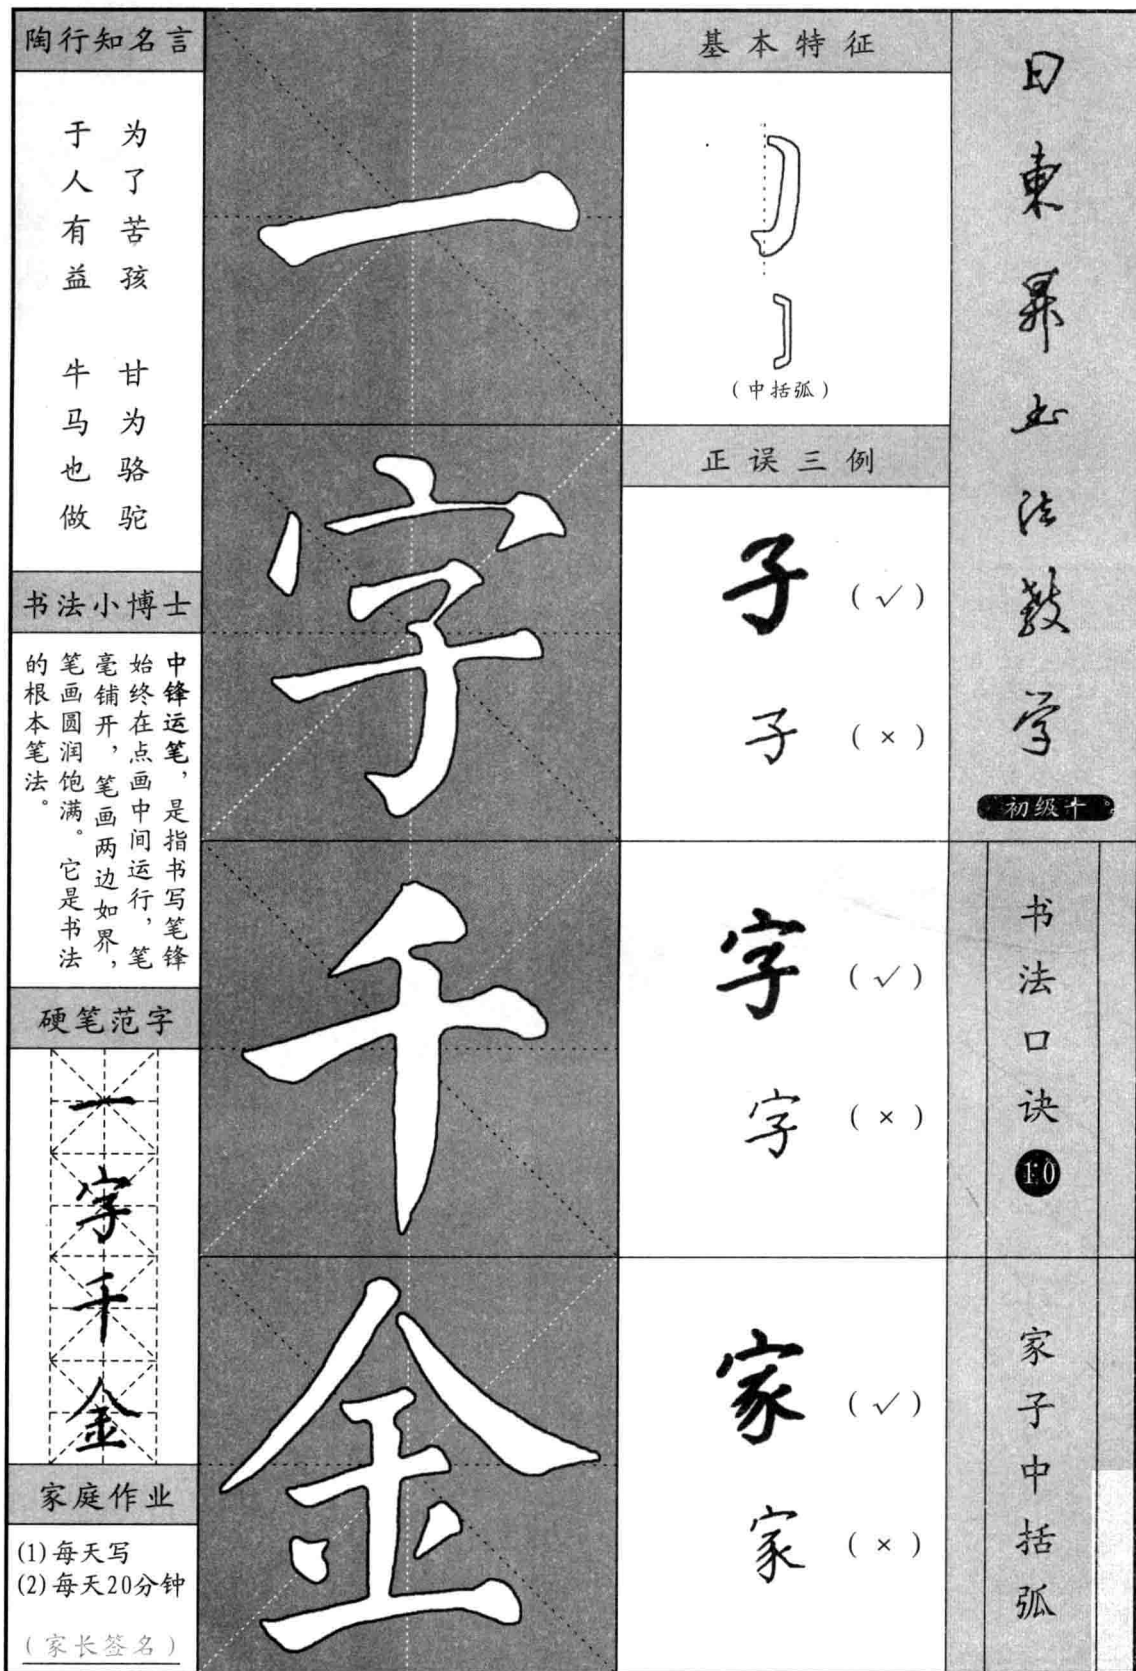 陶行知名言
为了苦孩 甘为骆驼
于人有益 牛马也做
书法小博士
中锋运笔，是指书写笔锋
始终在点画中间运行，笔
毫铺开，笔画两边如界，
笔画圆润饱满。它是书法
的根本笔法。
硬笔范字
一
字
千
金
家庭作业
(1)每天写
(2)每天20分钟
(家长签名)
一
字
千
金
基本特征
(中括弧)
正误三例
子 (✓)
子 (×)
字 (✓)
字 (×)
家 (✓)
家 (×)
日東昇书法教学
初级十
书法口诀10
家子中括弧